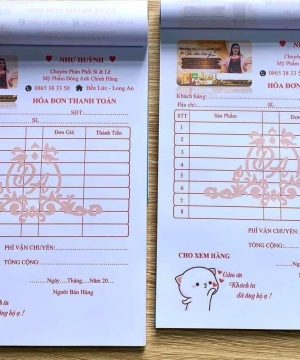 NHƯ HUỲNH
Chuyên Phân Phối Sỉ & Lẻ
Mỹ Phẩm Đông Anh Chính Hãng
0865 38 33 50 Bến Lức - Long An
HÓA ĐƠN THANH TOÁN
SĐT:
SL Đơn Giá Thành Tiền
ĐA
PHÍ VẬN CHUYỂN:
TỔNG CỘNG:
Ngày.....Tháng.....Năm 20...
Người Bán Hàng
ta
hộ ạ !
Chuyên
Mỹ Phẩm
0865 38 33
HÓA ĐƠN
Khách hàng:
Địa chỉ:
STT Sản Phẩm SL Đơn
1
2
3
4
5
6
7
8
ĐA
PHÍ VẬN
TỔNG CỘNG
CHO XEM HÀNG
Ngày
Cảm ơn
Khách iu
đã ủng hộ ạ !